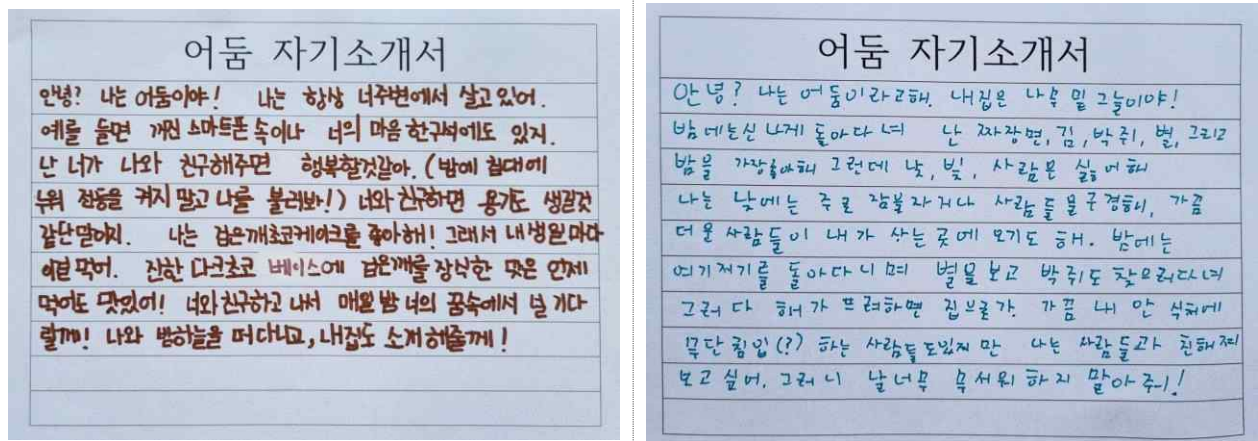 어둠 자기소개서
안녕? 나는 어둠이야! 나는 항상 너주변에서 살고있어.
예를 들면 꺼진 스마트폰 속이나 너의 마음 한구석에도 있지.
난 너가 나와 친구해주면 행복할것같아. (밤에 침대에
누워 전등을 켜지 말고 나를 불러봐!) 너와 친구하면 용기도 생길것
같단말이지. 나는 검은깨초코케이크를 좋아해! 그래서 내 생일마다
이걸 먹어. 진한 다크초코 베이스에 검은깨를 장식한 맛은 언제
먹어도 맛있어! 너와친구하고 나서 매일 밤 너의 꿈속에서 널 기다
릴께! 나와 밤하늘을 떠다니고, 내집도 소개해줄께!
어둠 자기소개서
안녕? 나는 어둠이라고해. 내집은 나무 밑 그늘이야!
밤에는신나게 돌아다녀 난 짜장면, 김, 박쥐, 별, 그리고
밤을 가장좋아해 그런데 낮, 빛, 사람은 싫어해
나는 낮에는 주로 잠을자거나 사람들을구경해, 가끔
더운 사람들이 내가 사는곳에 오기도 해. 밤에는
여기저기를 돌아다니며 별을보고 박쥐도 찾으러다녀
그러다 해가 뜨려하면 집으로가. 가끔 내 안식처에
무단침입(?) 하는 사람들도있지만 나는 사람들과 친해져
보고싶어. 그러니 날너무 무서워하지 말아줘!